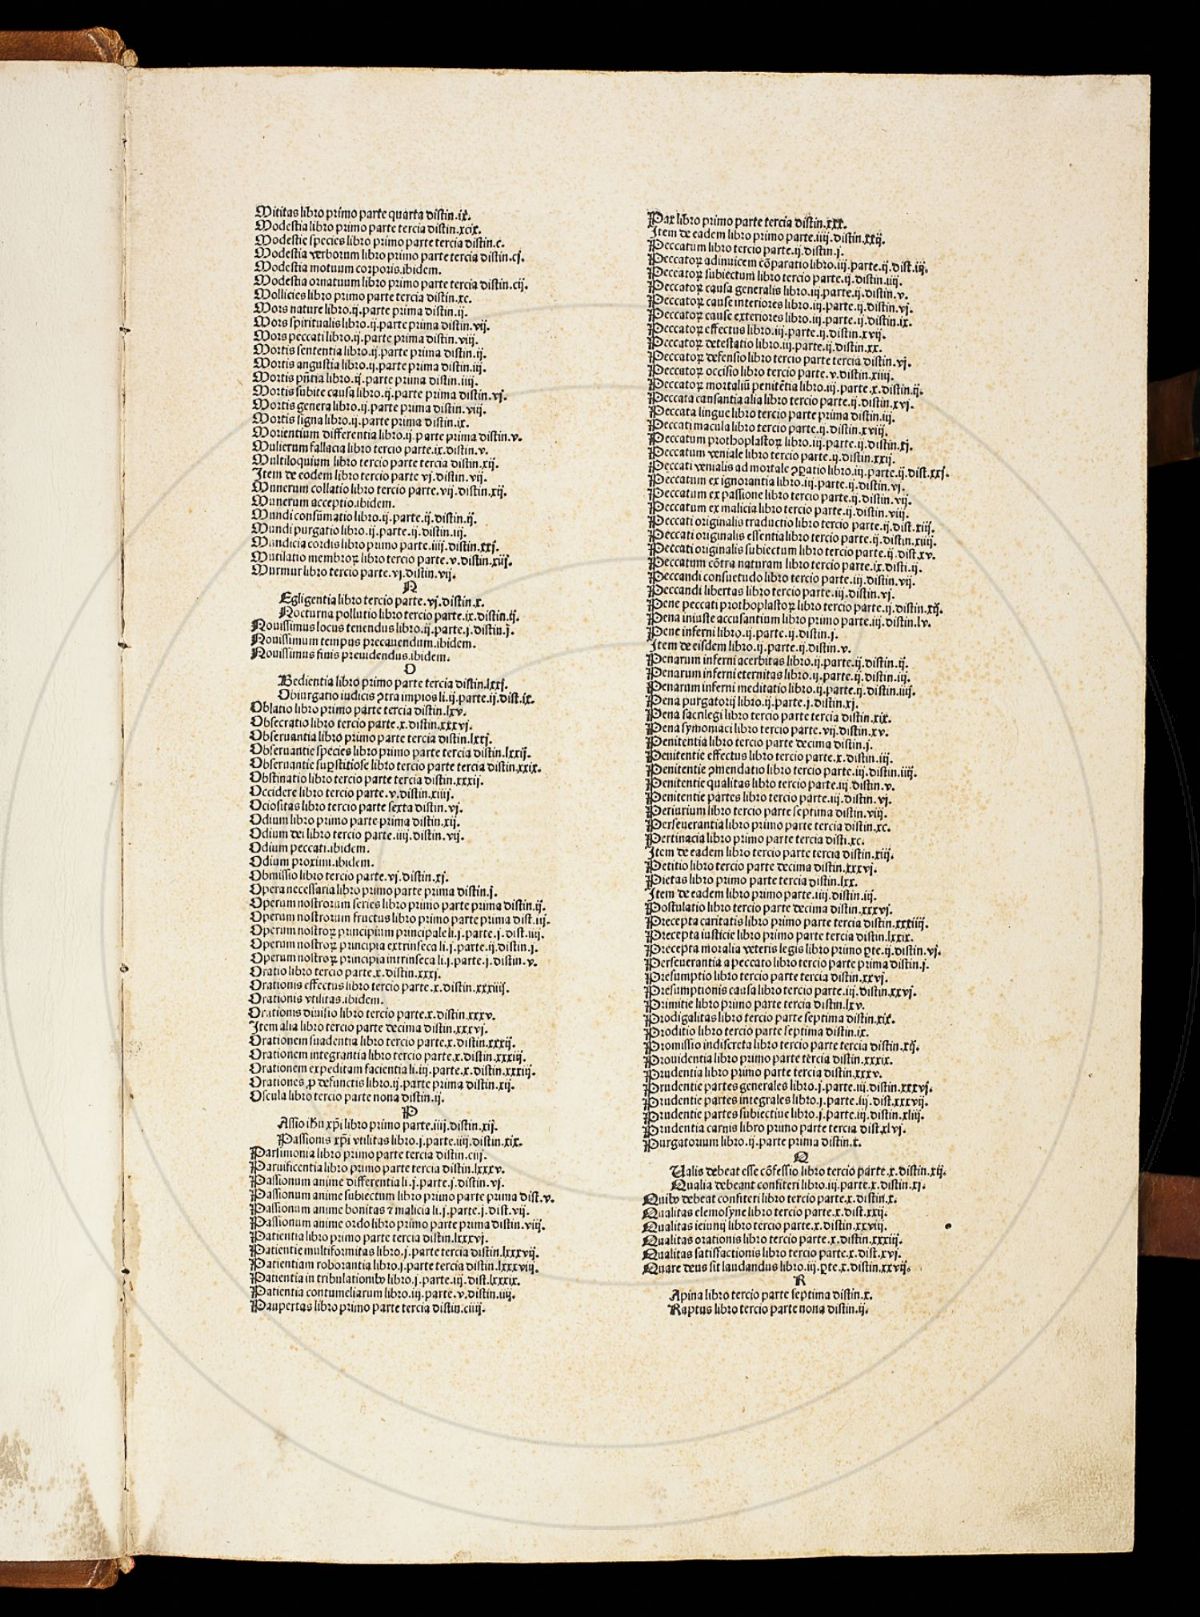 Mititas libro primo parte quarta distin.ix.
Modestia libro primo parte tercia distin.xcix.
Modestie species libro primo parte tercia distin.c.
Modestia verborum libro primo parte tercia distin.cj.
Modestia motuum corporis.ibidem.
Modestia ornatuum libro primo parte tercia distin.cij.
Mollicies libro primo parte tercia distin.xc.
Mors nature libro.ij.parte prima distin.ij.
Mors spiritualis libro.ij.parte prima distin.vij.
Mors peccati libro.ij.parte prima distin.viij.
Mortis sententia libro.ij.parte prima distin.ij.
Mortis angustia libro.ij.parte prima distin.iij.
Mortis pñtia libro.ij.parte prima distin.iiij.
Mortis subite causa libro.ij.parte prima distin.vj.
Mortis genera libro.ij.parte prima distin.viij.
Mortis signa libro.ij.parte prima distin.ix.
Morientium differentia libro.ij.parte prima distin.v.
Mulierum fallacia libro tercio parte.ix.distin.v.
Multiloquium libro tercio parte tercia distin.xij.
Item de eodem libro tercio parte vj.distin.vij.
Munerum collatio libro tercio parte.vij.distin.xij.
Munerum acceptio.ibidem.
Mundi consũmatio libro.ij.parte.ij.distin.ij.
Mundi purgatio libro.ij.parte.ij.distin.iij.
Mundicia cordis libro primo parte.iiij.distin.xxj.
Mutilatio membroꝝ libro tercio parte.v.distin.xiij.
Murmur libro tercio parte.vj.distin.vij.
N
Egligentia libro tercio parte.vj.distin.x.
Nocturna pollutio libro tercio parte.ix.distin.ij.
Nouissimus locus tenendus libro.ij.parte.j.distin.j.
Nouissimum tempus precauendum.ibidem.
Nouissimus finis preuidendus.ibidem.
O
Bedientia libro primo parte tercia distin.lxxj.
Obiurgatio iudicis ꝯtra impios li.ij.parte.ij.dist.ix.
Oblatio libro primo parte tercia distin.lxv.
Obsecratio libro tercio parte.x.distin.xxxvj.
Obseruantia libro primo parte tercia distin.lxxj.
Obseruantie species libro primo parte tercia distin.lxxij.
Obseruantie suꝑstitiose libro tercio parte tercia distin.xxix.
Obstinatio libro tercio parte tercia distin.xxxij.
Occidere libro tercio parte.v.distin.xiiij.
Ociositas libro tercio parte sexta distin.vj.
Odium libro primo parte prima distin.xij.
Odium dei libro tercio parte.iiij.distin.vij.
Odium peccati.ibidem.
Odium proximi.ibidem.
Obmissio libro tercio parte.vj.distin.xj.
Opera necessaria libro primo parte prima distin.j.
Operum nostrorum series libro primo parte prima distin.ij.
Operum nostrorum fructus libro primo parte prima dist.iij.
Operum nostroꝝ principium principale li.j.parte.j.dist.iiij.
Operum nostroꝝ principia extrinseca li.j.parte.ij.distin.j.
Operum nostroꝝ principia intrinseca li.j.parte.j.distin.v.
Oratio libro tercio parte.x.distin.xxxj.
Orationis effectus libro tercio parte.x.distin.xxxiiij.
Orationis vtilitas.ibidem.
Orationis diuisio libro tercio parte.x.distin.xxxv.
Item alia libro tercio parte decima distin.xxxvj.
Orationem suadentia libro tercio parte.x.distin.xxxij.
Orationem integrantia libro tercio parte.x.distin.xxxiij.
Orationem expeditam facientia li.iij.parte.x.distin.xxxiij.
Orationes ꝓ defunctis libro.ij.parte prima distin.xij.
Oscula libro tercio parte nona distin.ij.
P
Assio ihũ xp̃i libro primo parte.iiij.distin.xij.
Passionis xp̃i vtilitas libro.j.parte.iiij.distin.xix.
Parsimonia libro primo parte tercia distin.ciij.
Paruificentia libro primo parte tercia distin.lxxxv.
Passionum anime differentia li.j.parte.j.distin.vj.
Passionum anime subiectum libro primo parte prima dist.v.
Passionum anime bonitas ⁊ malicia li.j.parte.j.dist.vij.
Passionum anime ordo libro primo parte prima distin.viij.
Patientia libro primo parte tercia distin.lxxxvj.
Patientie multiformitas libro.j.parte tercia distin.lxxxvij.
Patientiam roborantia libro.j.parte tercia distin.lxxxviij.
Patientia in tribulationibꝰ libro.j.parte.iij.dist.lxxxix.
Patientia contumeliarum libro.iij.parte.v.distin.iiij.
Paupertas libro primo parte tercia distin.ciiij.
Pax libro primo parte tercia distin.xxx.
Item de eadem libro primo parte.iiij.distin.xxij.
Peccatum libro tercio parte.ij.distin.j.
Peccatoꝝ adinuicem cõparatio libro.iij.parte.ij.dist.iij.
Peccatoꝝ subiectum libro tercio parte.ij.distin.iiij.
Peccatoꝝ causa generalis libro.iij.parte.ij.distin.v.
Peccatoꝝ cause interiores libro.iij.parte.ij.distin.vj.
Peccatoꝝ cause exteriores libro.iij.parte.ij.distin.ix.
Peccatoꝝ effectus libro.iij.parte.ij.distin.xvij.
Peccatoꝝ detestatio libro.iij.parte.ij.distin.xx.
Peccatoꝝ defensio libro tercio parte tercia distin.vj.
Peccatoꝝ occisio libro tercio parte.v.distin.xiiij.
Peccatoꝝ mortaliũ penitẽtia libro.iij.parte.x.distin.ij.
Peccata causantia alia libro tercio parte.ij.distin.xvj.
Peccata lingue libro tercio parte prima distin.iij.
Peccati macula libro tercio parte.ij.distin.xviij.
Peccatum prothoplastoꝝ libro.iij.parte.ij.distin.xj.
Peccatum veniale libro tercio parte.ij.distin.xxij.
Peccati venialis ad mortale ꝯꝑatio libro.iij.parte.ij.dist.xxj.
Peccatum ex ignorantia libro.iij.parte.ij.distin.vj.
Peccatum ex passione libro tercio parte.ij.distin.vij.
Peccatum ex malicia libro tercio parte.ij.distin.viij.
Peccati originalis traductio libro tercio parte.ij.dist.xiij.
Peccati originalis essentia libro tercio parte.ij.distin.xiiij.
Peccati originalis subiectum libro tercio parte.ij.dist.xv.
Peccatum cõtra naturam libro tercio parte.ix.disti.ij.
Peccandi consuetudo libro tercio parte.iij.distin.vij.
Peccandi libertas libro tercio parte.iij.distin.vj.
Pene peccati prothoplastoꝝ libro tercio parte.ij.distin.xij.
Pena iniuste accusantium libro primo parte.iij.distin.lv.
Pene inferni libro.ij.parte.ij.distin.j.
Item de eisdem libro.ij.parte.ij.distin.v.
Penarum inferni acerbitas libro.ij.parte.ij.distin.ij.
Penarum inferni eternitas libro.ij.parte.ij.distin.iij.
Penarum inferni meditatio libro.ij.parte.ij.distin.iiij.
Pena purgatorij libro.ij.parte.j.distin.xj.
Pena sacrilegi libro tercio parte tercia distin.xix.
Pena symoniaci libro tercio parte.vij.distin.xv.
Penitentia libro tercio parte decima distin.j.
Penitentie effectus libro tercio parte.x.distin.iij.
Penitentie ꝯmendatio libro tercio parte.iij.distin.iiij.
Penitentie qualitas libro tercio parte.iij.distin.v.
Penitentie partes libro tercio parte.iij.distin.vj.
Periurium libro tercio parte septima distin.viij.
Perseuerantia libro primo parte tercia distin.xc.
Pertinacia libro primo parte tercia disti.xc.
Item de eadem libro tercio parte tercia distin.xiij.
Petitio libro tercio parte decima distin.xxxvj.
Pietas libro primo parte tercia distin.lxx.
Item de eadem libro primo parte.iiij.distin.iij.
Postulatio libro tercio parte decima distin.xxxvj.
Precepta caritatis libro primo parte tercia distin.xxiiij.
Precepta iusticie libro primo parte tercia distin.lxxix.
Precepta moralia veteris legis libro primo ꝑte.ij.distin.vj.
Perseuerantia a peccato libro tercio parte prima distin.j.
Presumptio libro tercio parte tercia distin.xxvj.
Presumptionis causa libro tercio parte.iij.distin.xxvj.
Primitie libro primo parte tercia distin.lxv.
Prodigalitas libro tercio parte septima distin.xix.
Proditio libro tercio parte septima distin.ix.
Promissio indiscreta libro tercio parte tercia distin.xij.
Prouidentia libro primo parte tercia distin.xxxix.
Prudentia libro primo parte tercia distin.xxxv.
Prudentie partes generales libro.j.parte.iij.distin.xxxvj.
Prudentie partes integrales libro.j.parte.iij.dist.xxxvij.
Prudentie partes subiectiue libro.j.parte.iij.distin.xliij.
Prudentia carnis libro primo parte tercia dist.xlvj.
Purgatorium libro.ij.parte prima distin.x.
Q
Ualis debeat esse cõfessio libro tercio parte.x.distin.xij.
Qualia debeant confiteri libro.iij.parte.x.distin.xj.
Quibꝰ debeat confiteri libro tercio parte.x.distin.x.
Qualitas elemosyne libro tercio parte.x.dist.xxij.
Qualitas ieiunij libro tercio parte.x.distin.xxviij.
Qualitas orationis libro tercio parte.x.distin.xxxiij.
Qualitas satisfactionis libro tercio parte.x.dist.xvj.
Quare deus sit laudandus libro.iij.ꝑte.x.distin.xxvij.
R
Apina libro tercio parte septima distin.x.
Raptus libro tercio parte nona distin.ij.